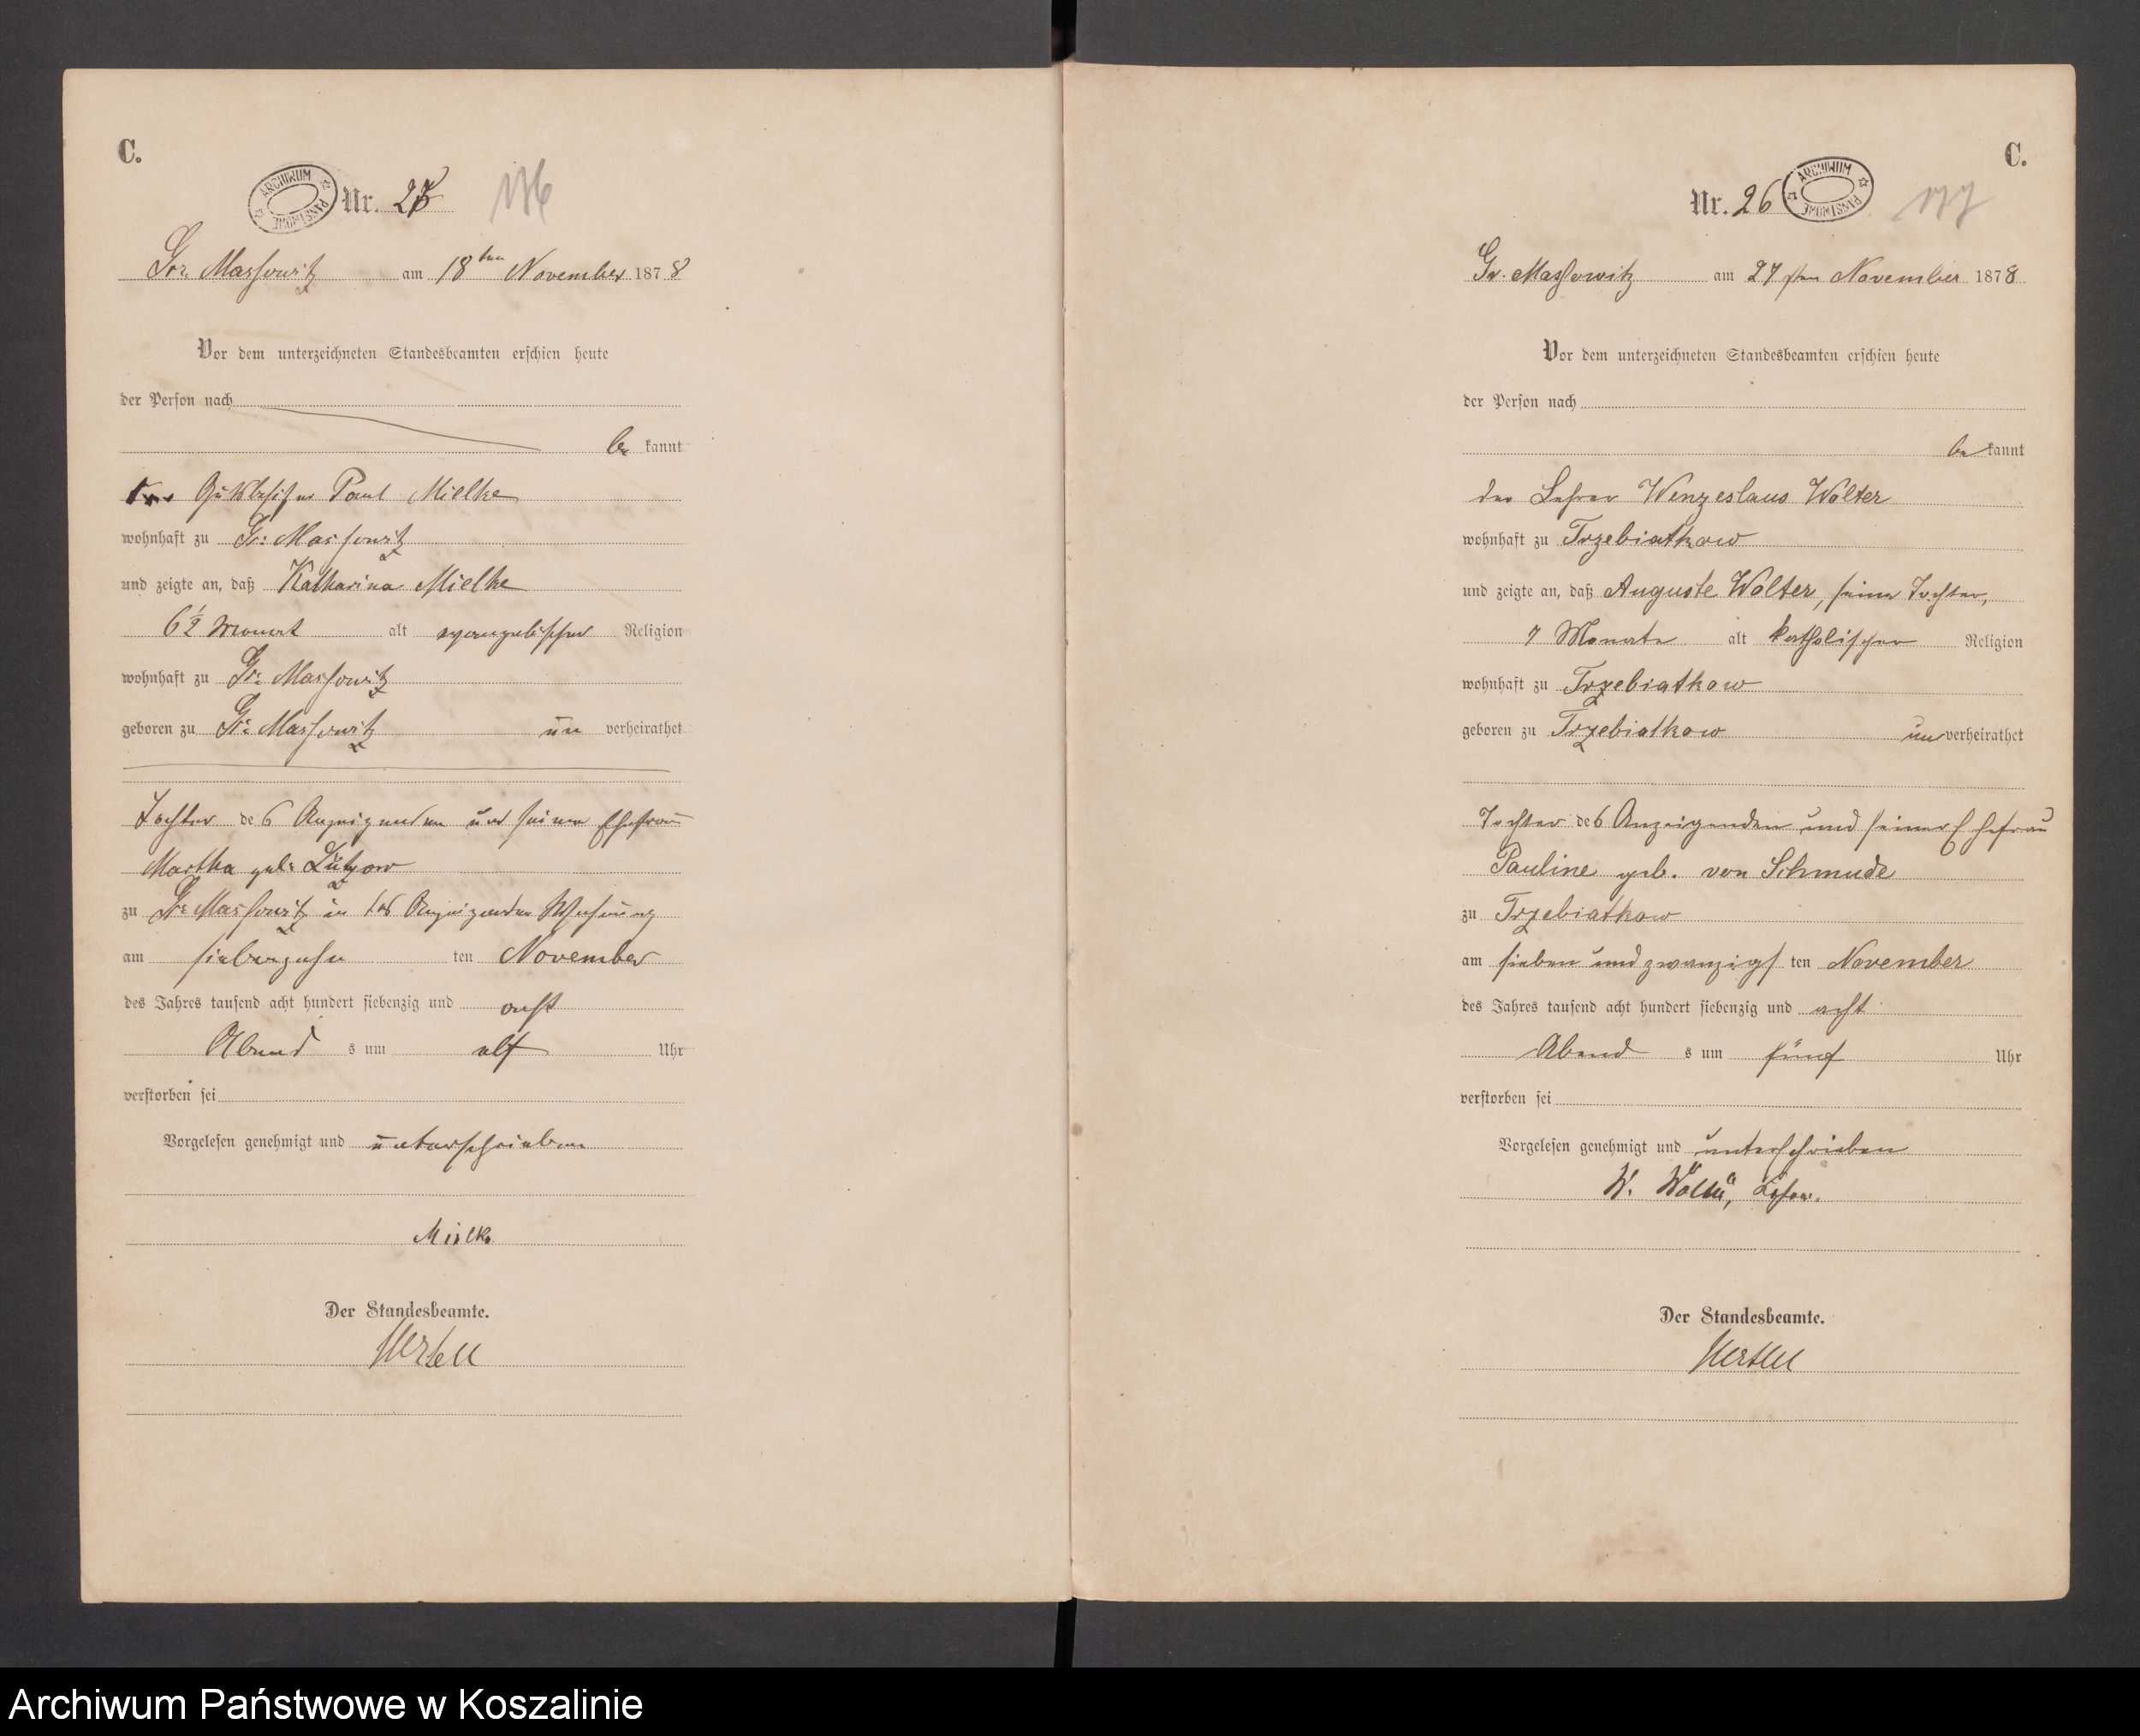 C.
ARCHIWUM PAŃSTWOWE
Nr. 136
Gr: Massowitz am 18ten November 1878
Vor dem unterzeichneten Standesbeamten erschien heute
der Person nach
be kannt
der Gutsbesitzer Paul Mielke
wohnhaft zu Gr: Massowitz
und zeigte an, daß Katharina Mielke
6½ Monat alt evangelischer Religion
wohnhaft zu Gr: Massowitz
geboren zu Gr: Massowitz un verheirathet
Tochter des Anzeigenden und seiner Ehefrau
Martha geb: Lützow
zu Gr: Massowitz in des Anzeigenden Wohnung
am siebenzehn ten November
des Jahres tausend acht hundert siebenzig und acht
Abend s um elf Uhr
verstorben sei
Vorgelesen genehmigt und unterschrieben
Mielke
Der Standesbeamte.
C.
ARCHIWUM PAŃSTWOWE
Nr. 26 137
Gr. Massowitz am 27sten November 1878
Vor dem unterzeichneten Standesbeamten erschien heute
der Person nach
be kannt
der Lehrer Wenzeslaus Wolter
wohnhaft zu Trzebiatkow
und zeigte an, daß Auguste Wolter, seine Tochter,
7 Monate alt katholischer Religion
wohnhaft zu Trzebiatkow
geboren zu Trzebiatkow un verheirathet
Tochter des Anzeigenden und seiner Ehefrau
Pauline geb. von Schmude
zu Trzebiatkow
am sieben und zwanzigs ten November
des Jahres tausend acht hundert siebenzig und acht
Abend s um fünf Uhr
verstorben sei
Vorgelesen genehmigt und unterschrieben
W. Wolter, Lehrer.
Der Standesbeamte.
Archiwum Państwowe w Koszalinie